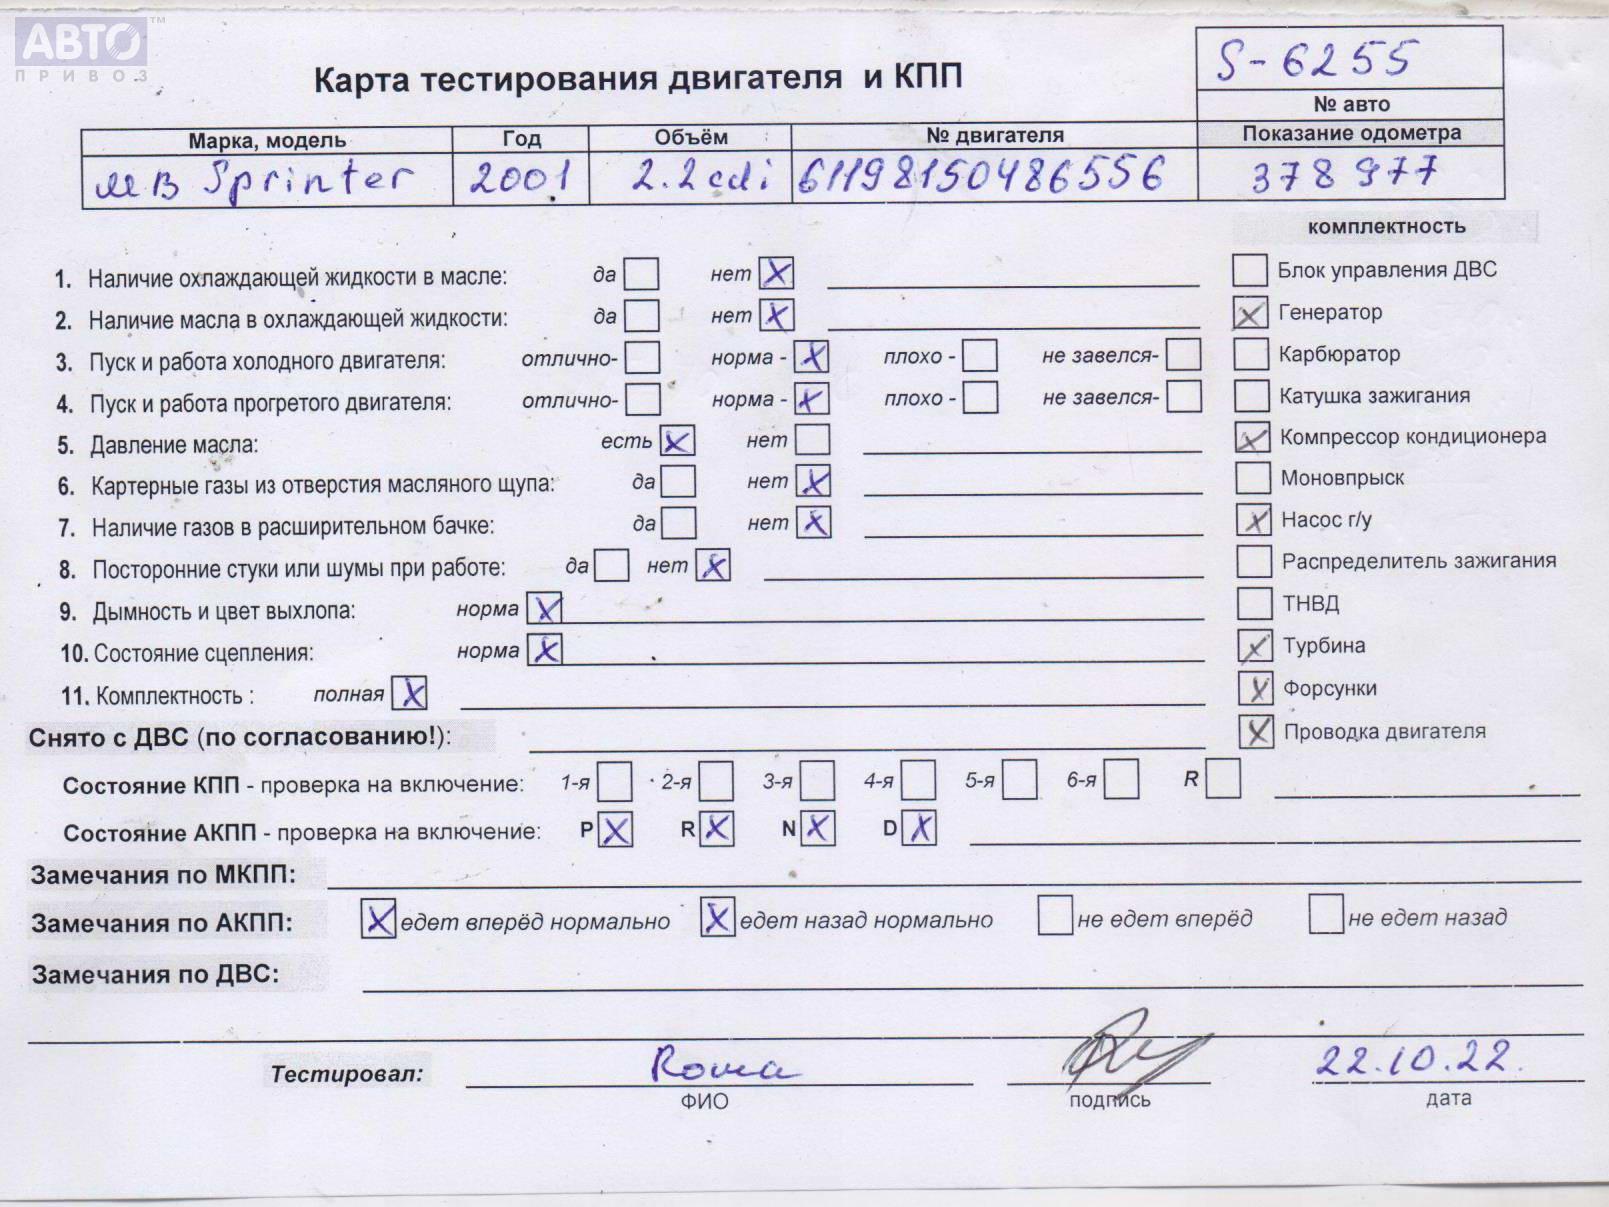 АВТО™
ПРИВОЗ
S-6255
Карта тестирования двигателя и КПП
№ авто
Марка, модель Год Объём № двигателя Показание одометра
MB Sprinter 2001 2.2 cdi 61198150486556 378977
комплектность
1. Наличие охлаждающей жидкости в масле: да нет X
Блок управления ДВС
2. Наличие масла в охлаждающей жидкости: да нет X
X Генератор
3. Пуск и работа холодного двигателя: отлично- норма - X плохо - не завелся-
Карбюратор
4. Пуск и работа прогретого двигателя: отлично- норма - X плохо - не завелся-
Катушка зажигания
5. Давление масла: есть X нет
X Компрессор кондиционера
6. Картерные газы из отверстия масляного щупа: да нет X
Моновпрыск
7. Наличие газов в расширительном бачке: да нет X
X Насос г/у
8. Посторонние стуки или шумы при работе: да нет X
Распределитель зажигания
9. Дымность и цвет выхлопа: норма X
ТНВД
10. Состояние сцепления: норма X
X Турбина
11. Комплектность : полная X
X Форсунки
Снято с ДВС (по согласованию!):
X Проводка двигателя
Состояние КПП - проверка на включение: 1-я 2-я 3-я 4-я 5-я 6-я R
Состояние АКПП - проверка на включение: P X R X N X D X
Замечания по МКПП:
Замечания по АКПП: X едет вперёд нормально X едет назад нормально не едет вперёд не едет назад
Замечания по ДВС:
Тестировал: Рома 22.10.22.
ФИО подпись дата